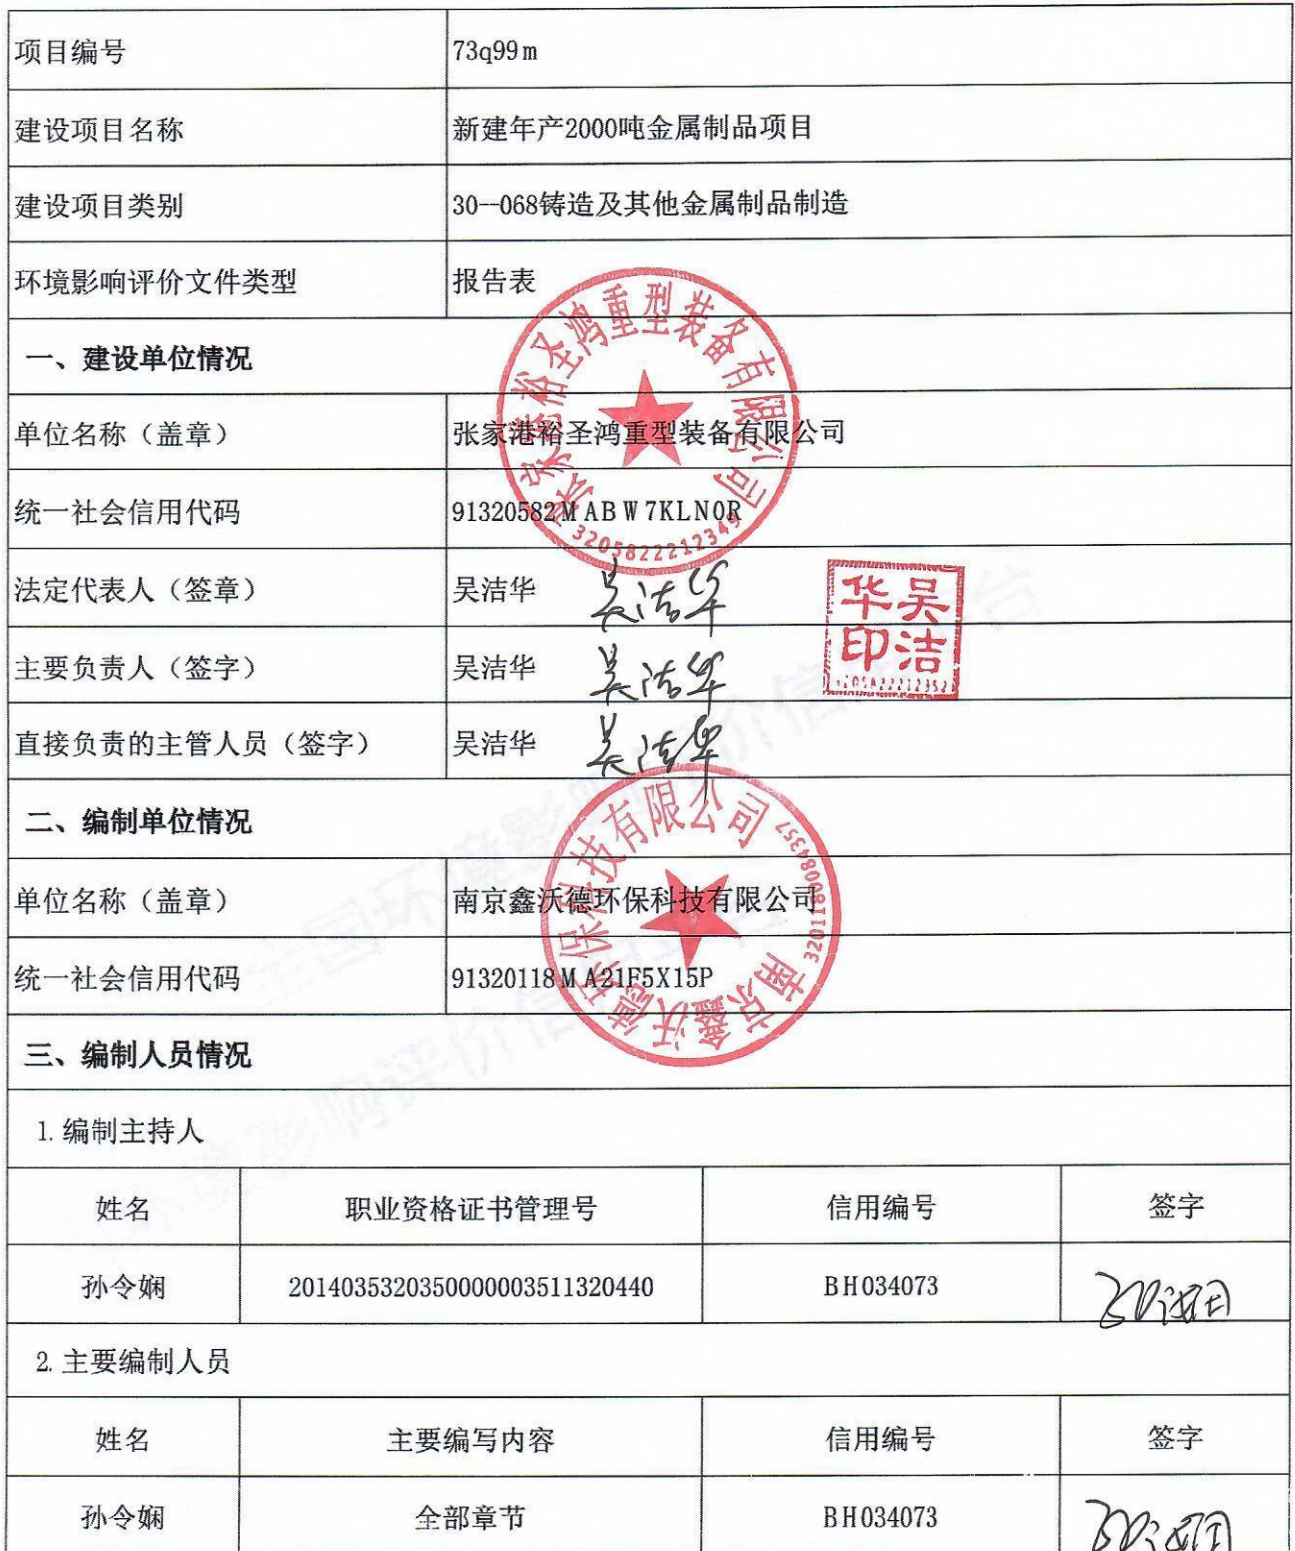 项目编号 73q99m
建设项目名称 新建年产2000吨金属制品项目
建设项目类别 30--068铸造及其他金属制品制造
环境影响评价文件类型 报告表
一、建设单位情况
单位名称（盖章） 张家港裕圣鸿重型装备有限公司
统一社会信用代码 91320582MABW7KLN0R
张家港裕圣鸿重型装备有限公司
3205822212349
法定代表人（签章） 吴洁华 吴洁华
吴洁华印
主要负责人（签字） 吴洁华 吴洁华
直接负责的主管人员（签字） 吴洁华 吴洁华
二、编制单位情况
单位名称（盖章） 南京鑫沃德环保科技有限公司
统一社会信用代码 91320118MA21F5X15P
南京鑫沃德环保科技有限公司
3201180084357
三、编制人员情况
1. 编制主持人
姓名 职业资格证书管理号 信用编号 签字
孙令娴 2014035320350000003511320440 BH034073 孙令娴
2. 主要编制人员
姓名 主要编写内容 信用编号 签字
孙令娴 全部章节 BH034073 孙令娴